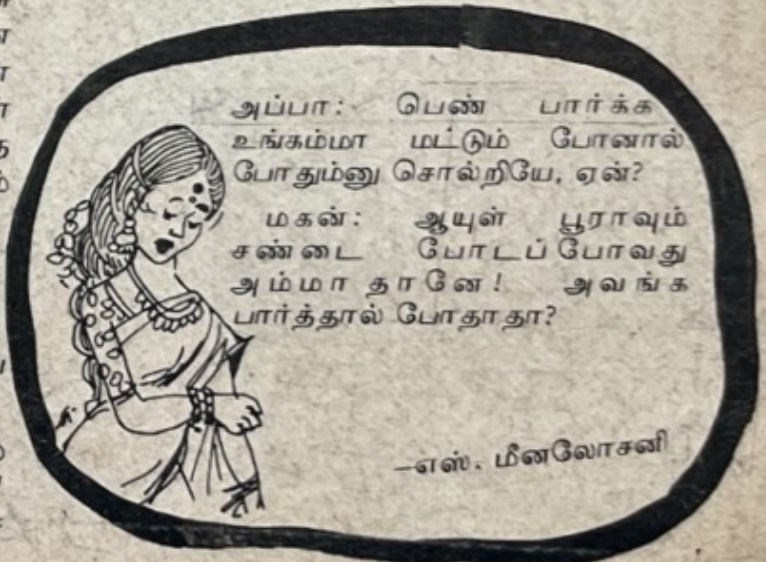 அப்பா: பெண் பார்க்க
உங்கம்மா மட்டும் போனால்
போதும்னு சொல்றியே, ஏன்?
மகன்: ஆயுள் பூராவும்
சண்டை போடப் போவது
அம்மா தானே! அவங்க
பார்த்தால் போதாதா?
—எஸ். மீனலோசனி